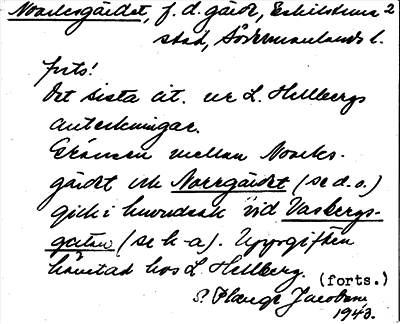 Noaksgärdet, f. d. gärde, Eskilstuna 2
stad, Södermanlands l.
forts!
Det sista cit. ur L. Hellbergs
anteckningar.
Gränsen mellan Noaks-
gärdet och Norrgärdet (se d. o.)
gick i huvudsak vid Vasbergs-
gatan (se k-a). Uppgiften
hämtad hos L. Hellberg.
(forts.)
S. Plaugé Jacobson
1943.